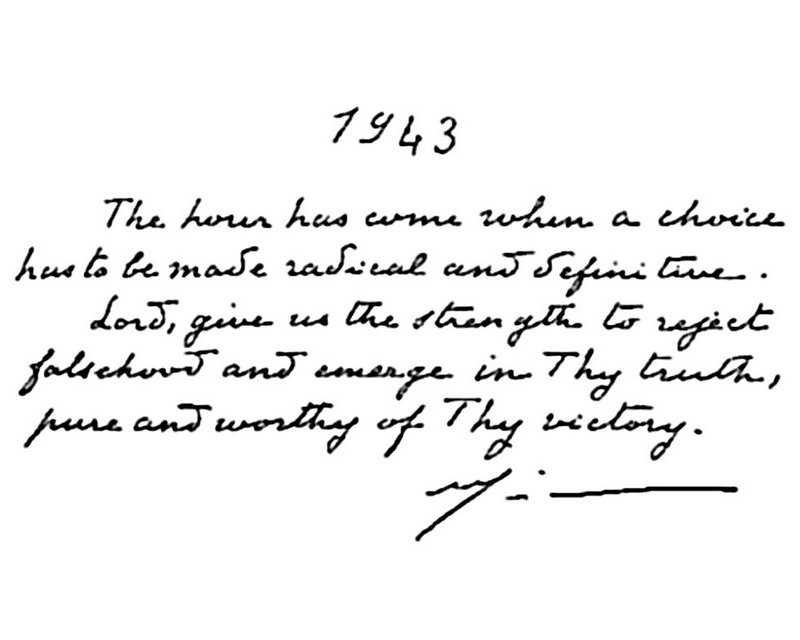 1943
The hour has come when a choice
has to be made radical and definitive.
Lord, give us the strength to reject
falsehood and emerge in Thy truth,
pure and worthy of Thy victory.